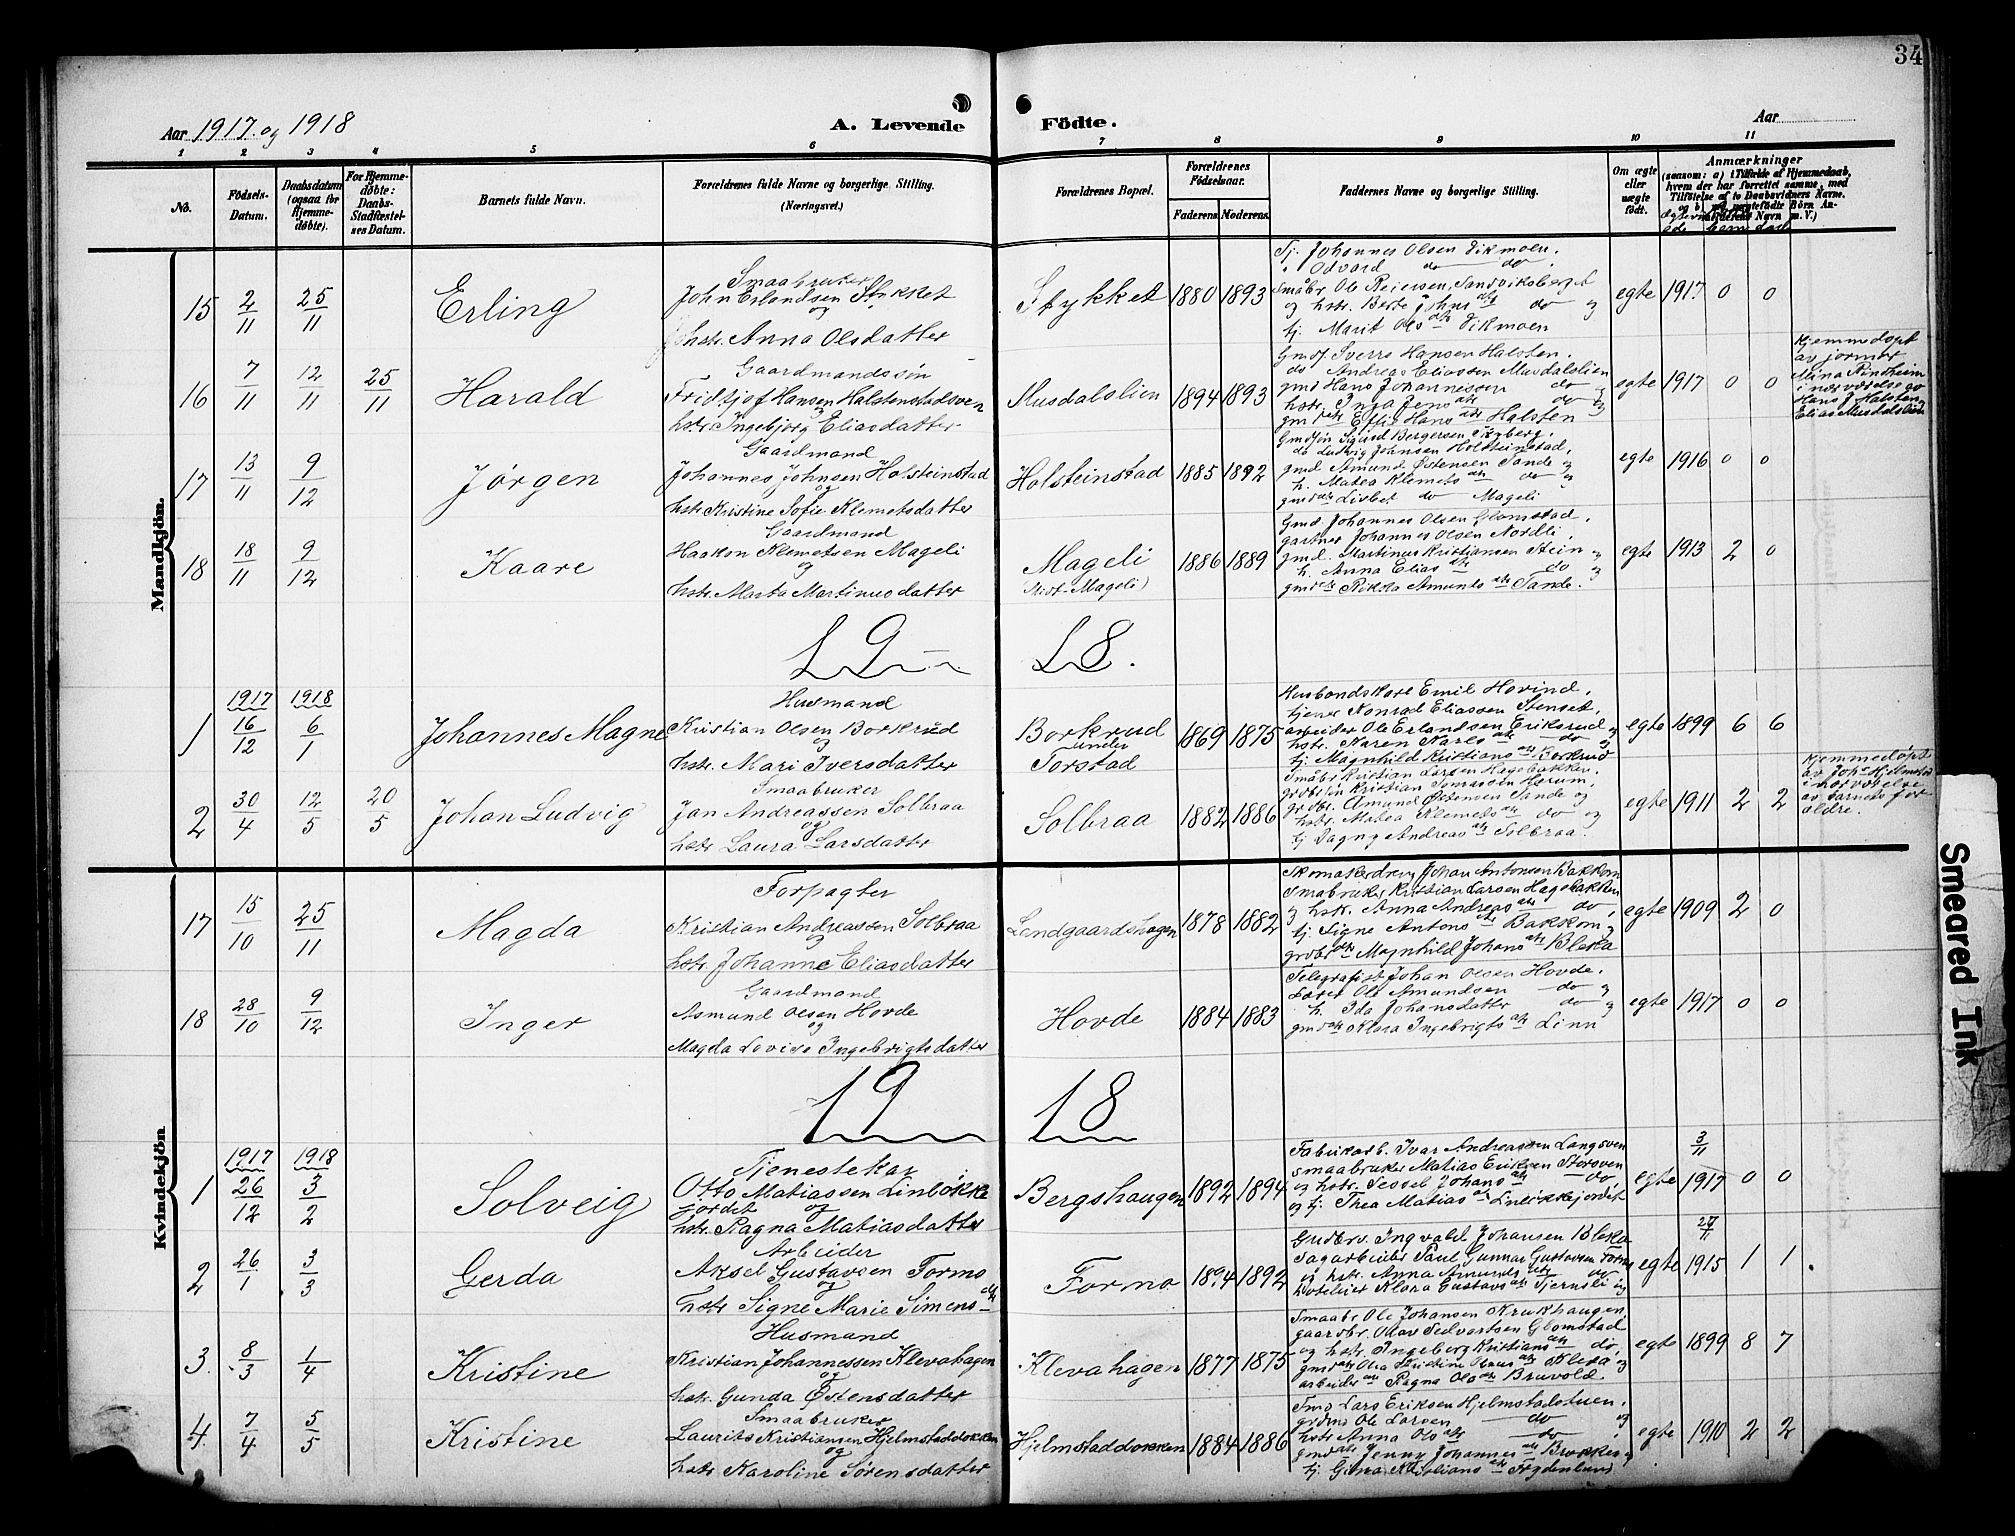 34
Aar 1917 og 1918
A. Levende
Födte.
Aar
1 2 3 4 5 6 7 8 9 10 11
No.
Födsels-Datum.
Daabsdatum (ogsaa for Hjemme-døbte).
For Hjemme-døbte: Daabs-Stadfæstel-ses Datum.
Barnets fulde Navn.
Forældrenes fulde Navne og borgerlige Stilling.
(Næringsvei.)
Forældrenes Bopæl.
Forældrenes Födselsaar.
Faderens. Moderens.
Faddernes Navne og borgerlige Stilling.
Om ægte eller uægte født.
Anmærkninger
(saasom: a) i Tilfælde af Hjemmedaab, hvem der har forrettet samme, med Tilføielse af to Daabsvidners Navne.
Mandkjön.
15 2/11 25/11 Erling
Smaabruker
John Erlandsen Stykket
og
hstr. Anna Olsdatter
Stykket 1880 1893
Tj. Johannes Olsen Vikmoen,
" Odvard do do.
Småbr. Ole Reiersen, Sandviksberget
og hstr. Berte Johns dtr do og
tj. Marit Ols dtr Vikmoen
egte 1917 0 0
16 7/11 12/11 25/11 Harald
Gaardmandssøn
Fridtjof Hansen Halstenstadsven
og
hstr. Ingebjørg Eliasdatter
Musdalslien 1894 1893
Gmdsf. Sverre Hansen Halsten.
do Andreas Eliassen Musdalslien
gmd Hans Johannessen do og
hstr. Inga Jens dtr do og
gmd dtr Effie Hans dtr Halsten
egte 1917 0 0
Hjemmedøpt
av jormor
Mina Rindheim
i nærværelse av
Hans J. Halsten og
Elias Musdalslien
17 13/11 9/12 Jørgen
Gaardmand
Johannes Johnsen Holsteinstad
og
hstr. Kristine Sofie Klemetsdatter
Holsteinstad 1885 1892
Gmdsøn Sigurd Bergersen Skyberg,
do Ludvig Johnsen Holsteinstad,
gmd. Amund Østensen Sande og
h. Matea Klemets dtr do og
gmd dtr Lisbet do Mageli
egte 1916 0 0
18 18/11 9/12 Kaare
Gaardmand
Haakon Klemetsen Mageli
og
hstr. Marta Martinusdatter
Mageli
(Nist-Mageli)
1886 1889
Gmd. Johannes Olsen Glomstad,
gartner Johannes Olsen Nordli,
gmd. Martinus Kristiansen Stein og
h. Anna Elias dtr do og
gmd dtr Rikka Amunds dtr Sande.
egte 1913 2 0
19 18.
1917 1918
1 16/12 6/1 Johannes Magne
Husmand
Kristian Olsen Borkrud
og
hstr. Mari Iversdatter
Borkrud
under
Torstad
1869 1875
Husbondskare Emil Hovind,
tjener Konrad Eliassen Stenset,
arbeider Ole Erlandsen Eriksrud og
hstr. Karen Karls dtr do og
tj. Magnhild Kristians dtr Borkrud
egte 1899 6 6
2 30/4 12/5 20/5 Johan Ludvig
Smaabruker
Jan Andreassen Solbraa
og
hstr Laura Larsdatter
Solbraa 1882 1886
Småbr Kristian Larsen Hagebakken,
grdbr. Amund Østensen Sande og
hstr. Matea Klemets dtr do og
tj Dagny Andreas dtr Solbraa.
egte 1911 2 2
Hjemmedøpt
av Johs Hjelmstad
i nærværelse
av barnets for-
ældre.
Kvindekjön
17 15/10 25/11 Magda
Forpagter
Kristian Andreassen Solbraa
og
hstr. Johanne Eliasdatter
Lendgaardshagen 1878 1882
Skomakerdreng Johan Antonsen Bakkom
Smabruker Kristian Larsen Hagebakken
og hstr. Anna Andreas dtr do,
tj. Signe Antons dtr Bakkom og
grdbr dtr Magnhild Johans dtr Bleka
egte 1909 2 0
18 28/10 9/12 Inger
Gaardmand
Asmund Olsen Hovde
og
Magda Lovise Ingebrigtsdatter
Hovde 1884 1883
Telegrafist Johan Olsen Hovde,
Lærer Ole Amundsen do og
h. Ida Johansdatter do og
gmd dtr Klara Ingebrigts dtr Linn
egte 1917 0 0
19 18
1917 1918
1 26/12 3/2 Solveig
Tjenestekar
Otto Matiassen Linløkke
jordet og
hstr. Ragna Matiasdatter
Bergshaugen 1892 1894
Fabrikarb. Ivar Andreassen Langsven
smaabruker Matias Eriksen Storsven
og hstr. Sessel Johans dtr do,
og tj. Thea Matias dtr Linløkkejordet
egte 3/11 1917 0 0
2 26/1 3/3 Gerda
Arbeider
Aksel Gustavsen Formo
og
hstr. Signe Marie Simens dtr
Formo 1894 1892
Grdbrs. Ingvald Johansen Bleka
Sagarbeider Paul Gunnar Gustavsen Formo
og hstr. Anna Amunds dtr do,
hotelier Klara Gustavs dtr Tjernsli og
egte 27/11 1915 1 1
3 8/3 1/4 Kristine
Husmand
Kristian Johannessen Klevahagen
og
hstr. Gunda Østensdatter
Klevahagen 1877 1875
Smaabr. Ole Johansen Krukhaugen,
gaardbr. Olav Sedvartsen Glomstad
og hstr. Ingeborg Kristians dtr do,
gmd dtr Olea Kristine Olaus dtr Kleva og
arbeider dtr Ragna Ols dtr Bruvold.
egte 1899 8 7
4 7/4 5/5 Kristine
Smaabruker
Laurits Kristiansen Hjelmstaddokken
og
hstr. Karoline Sørensdatter
Hjelmstaddokken 1884 1886
Smb Lars Eriksen Hjelmstadstuen,
grdms Ole Larsen do og
hstr. Anna Ols dtr do,
gmd dtr Jenny Johannes dtr Brekken og
tj. Gina Kristians dtr Frydenlund
egte 1910 2 2
Smeared Ink